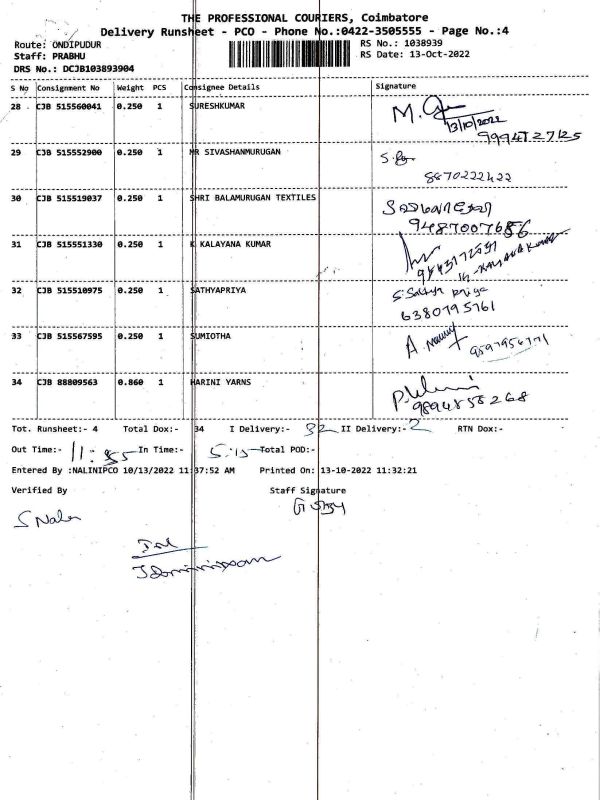 THE PROFESSIONAL COURIERS, Coimbatore
Delivery Runsheet - PCO - Phone No.:0422-3505555 - Page No.:4
Route: ONDIPUDUR RS No.: 1038939
Staff: PRABHU RS Date: 13-Oct-2022
DRS No.: DCJB103893904
S No Consignment No Weight PCS Consignee Details Signature
28 CJB 515560041 0.250 1 SURESHKUMAR
13/10/2022
9994727125
29 CJB 515552900 0.250 1 MR SIVASHANMURUGAN
8870222422
30 CJB 515519037 0.250 1 SHRI BALAMURUGAN TEXTILES
9487007686
31 CJB 515551330 0.250 1 K KALAYANA KUMAR
K. KALYANA KUMAR
32 CJB 515510975 0.250 1 SATHYAPRIYA
S. Sathya priya
6380795761
33 CJB 515567595 0.250 1 SUMIOTHA
34 CJB 88809563 0.860 1 HARINI YARNS
9894858268
Tot. Runsheet:- 4 Total Dox:- 34 I Delivery:- 32 II Delivery:- 2 RTN Dox:-
Out Time:- 11:55 In Time:- 5:15 Total POD:-
Entered By :NALINIPCO 10/13/2022 11:37:52 AM Printed On: 13-10-2022 11:32:21
Verified By Staff Signature